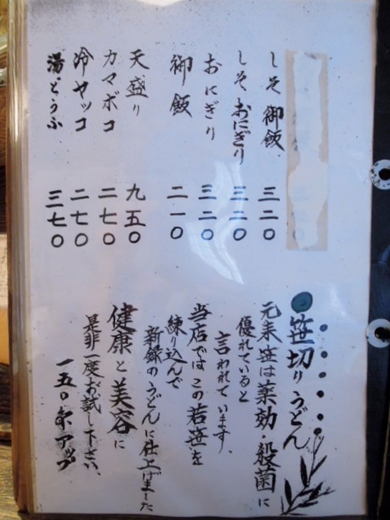 しそ御飯 三二〇
しそおにぎり 三二〇
おにぎり 三二〇
御飯 二一〇
天盛り 九五〇
カマボコ 二七〇
冷ヤッコ 二七〇
湯どうふ 三七〇
笹切りうどん
元来笹は薬効・殺菌に
優れていると
言われています、
当店ではこの若笹を
練り込んで
新緑のうどんに仕上げました
健康と美容に
是非一度お試し下さい、
一五〇円アップ